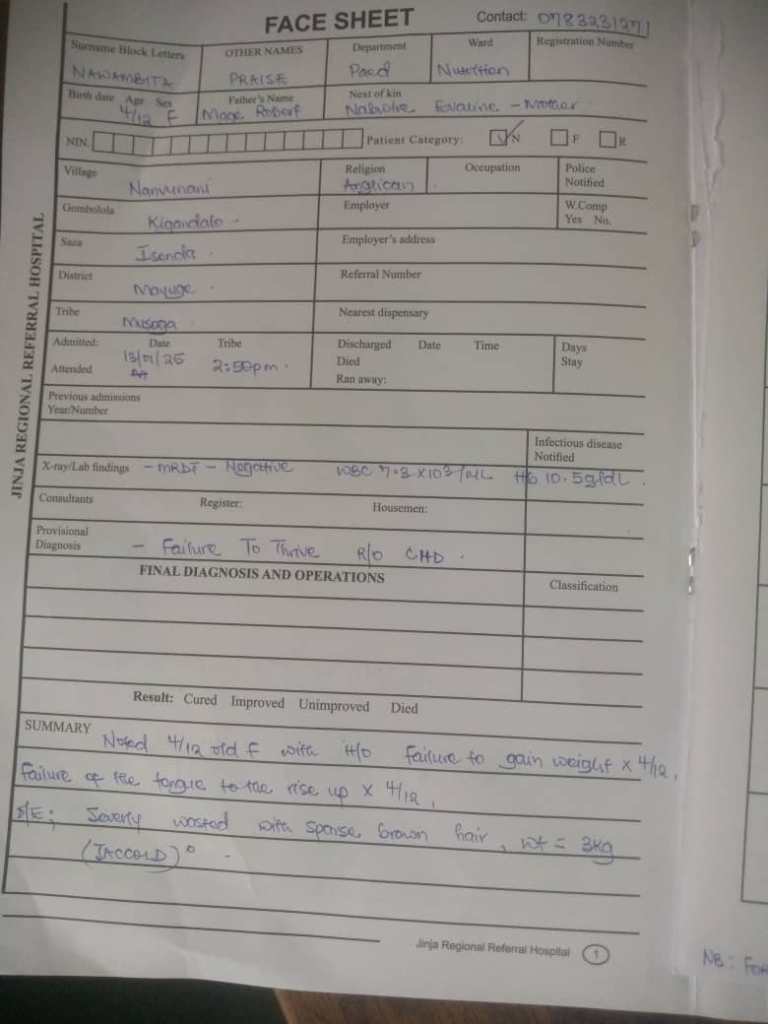 FACE SHEET Contact: 0783231271
Surname Block Letters OTHER NAMES Department Ward Registration Number
NAWAMBITA PRAISE Paed Nutrition
Birth date Age Sex Father's Name Next of kin
4/12 F Moge Robert Evaline - Mother
NIN. Patient Category: N F R
Village Religion Occupation Police Notified
Anglican
Gombolola Employer W.Comp Yes No.
Kigandalo
Saza Employer's address
District Referral Number
Mayuge
Tribe Nearest dispensary
Musoga
Admitted: Date Tribe Discharged Date Time Days Stay
13/01/25 2:50pm
Attended Died
Ran away:
Previous admissions
Year/Number
Infectious disease
Notified
X-ray/Lab findings - MRDT - Negative WBC 7.3 x10³/uL Hb 10.5g/dL
Consultants Register: Housemen:
Provisional
Diagnosis - Failure To Thrive R/O CHD.
FINAL DIAGNOSIS AND OPERATIONS Classification
Result: Cured Improved Unimproved Died
SUMMARY Noted 4/12 old F with H/O failure to gain weight x 4/12,
failure of the tongue to the rise up x 4/12,
O/E; Severly wasted with sparse brown hair, wt = 3kg
(JACCOLD)°
Jinja Regional Referral Hospital 1
JINJA REGIONAL REFERRAL HOSPITAL
NB: FOR